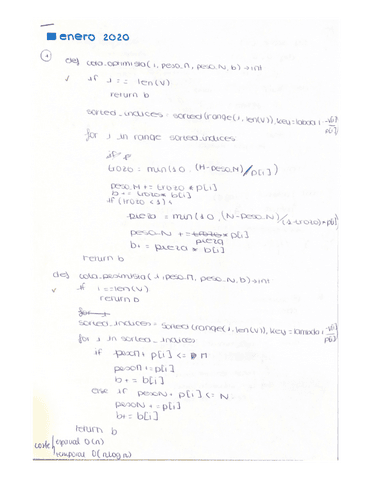 enero 2020
1
def cota_optimista(i, peso_M, peso_N, b)→int
✓ if i == len(V)
return b
sorted_indices = sorted(range(i, len(V)), key=lambda i: -V[i]
p[i]
for i in range sorted_indices
if p
trozo = min(1.0, (M-peso_M)/p[i])
peso_M += trozo * p[i]
b += trozo * b[i]
if (trozo < 1)
pieza = min(1.0, (N-peso_N)/(1-trozo)*p[i]
peso_N += trozo * p[i]
pieza
b += pieza * b[i]
return b
def cota_pesimista(i, peso_M, peso_N, b)→int
✓ if i == len(V)
return b
for i
sorted_indices = sorted(range(i, len(V)), key=lambda i: -V[i]
p[i]
for i in sorted_indices
if pesoM + p[i] <= M
pesoM += p[i]
b += b[i]
else if pesoN + p[i] <= N
pesoN += p[i]
b += b[i]
return b
coste espacial O(n)
temporal O(n log n)